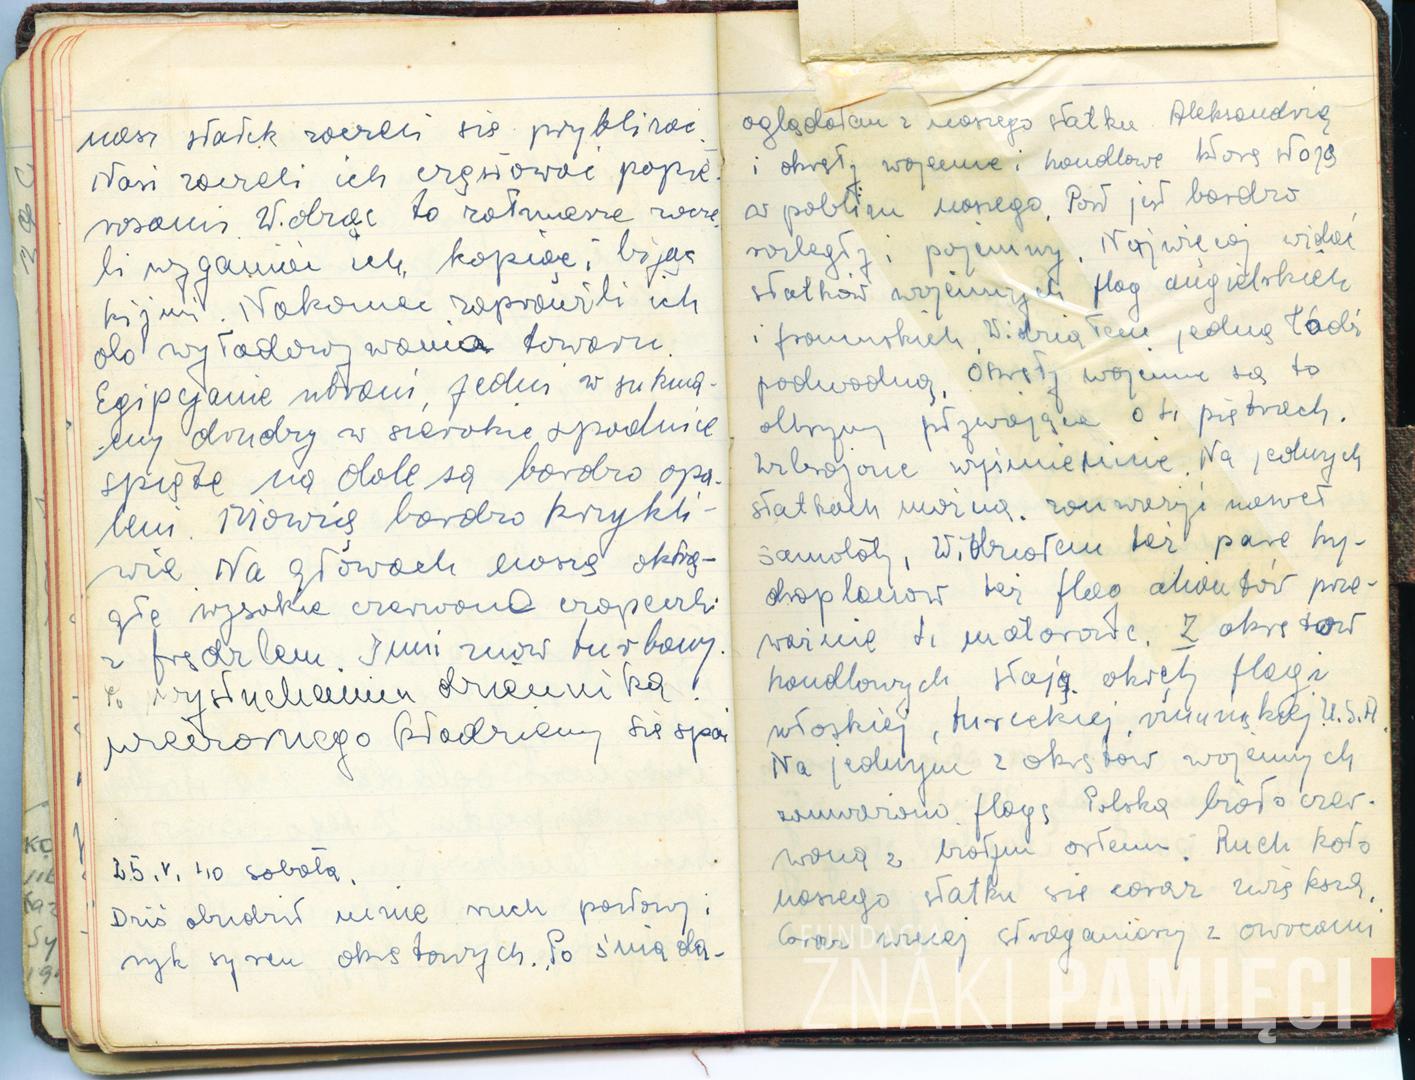 nasz statek zaczeli się przybliżać.
Nasi zaczeli ich częstować papie-
rosami. Widząc to żołnierze zaczę
li wyganiać ich, kopiąc i bijąc
kijmi. Nakoniec zaprowadzili ich
do wyładowywania towaru.
Egipcjanie ubrani, jedni w sukma-
ny drudzy w szerokie spodnie
spięte na dole są bardzo opa-
leni. Mówią bardzo krzykli-
wie Na głowach noszą okrą-
głe wysokie czerwone czapeczki
z frędzlem. Inni znów turbany.
Po wysłuchaniu dziennika
wieczornego kładziemy się spać
25.V.40 sobota.
Dziś obudził mnie ruch portowy i
ryk syren okrętowych. Po śniada-
oglądałem z naszego statku Aleksandrię
i okręty wojenne i handlowe które stoją
w pobliżu naszego. Port jest bardzo
rozległy i pojemny. Najwięcej widać
statków wojennych flag angielskich
i francuskich. Widziałem jedną łódź
podwodną. Okręty wojenne są to
olbrzymy pływające o 4 piętrach.
Uzbrojone wyśmienicie. Na jednych
statkach można zauważyć nawet
samoloty. Widziałem też parę hy-
droplanów też flag aliantów prze-
ważnie 4 motorowe. Z okrętów
handlowych stają okręty flagi
włoskiej, tureckiej, rumuńskiej U.S.A.
Na jednym z okrętów wojennych
zauważono flagę Polską biało czer-
woną z białym orłem. Ruch koło
naszego statku się coraz zwiększa.
Coraz więcej straganiarzy z owocami
FUNDACJA
ZNAKI PAMIĘCI